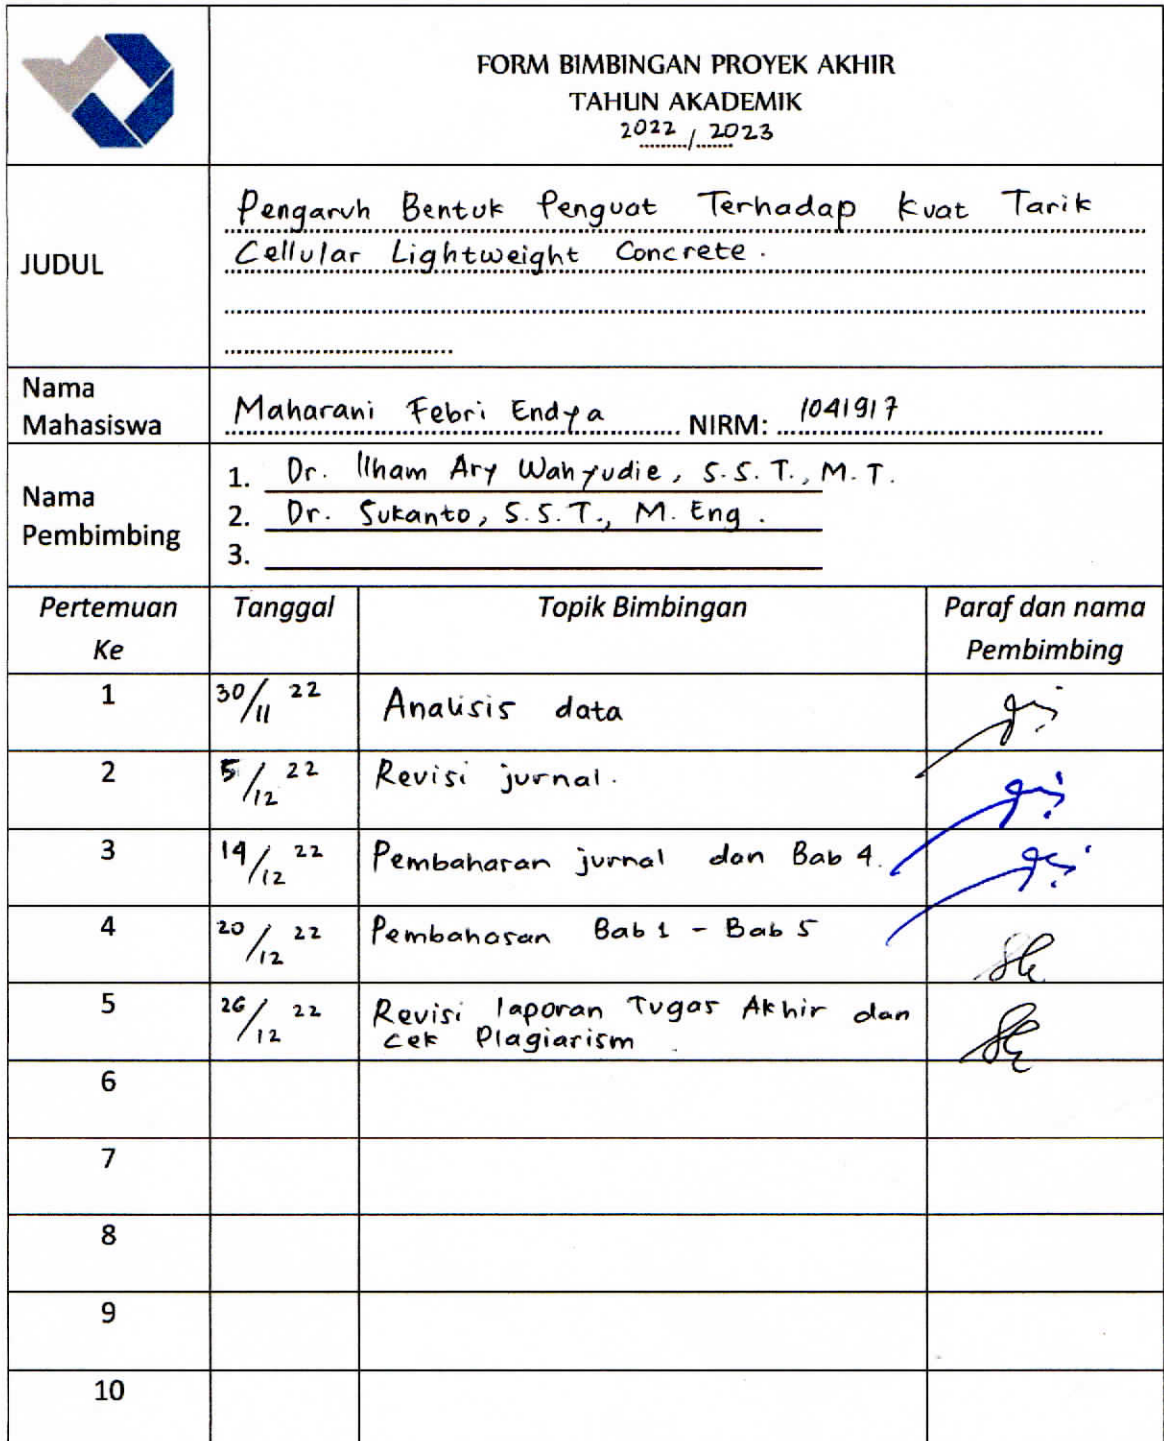 FORM BIMBINGAN PROYEK AKHIR
TAHUN AKADEMIK
2022 / 2023
JUDUL
Pengaruh Bentuk Penguat Terhadap Kuat Tarik
Cellular Lightweight Concrete.
Nama
Mahasiswa
Maharani Febri Endya NIRM: 1041917
Nama
Pembimbing
1. Dr. Ilham Ary Wahyudie, S.S.T., M.T.
2. Dr. Sukanto, S.S.T., M.Eng.
3.
Pertemuan Ke Tanggal Topik Bimbingan Paraf dan nama Pembimbing
1 30/11 22 Analisis data
2 5/12 22 Revisi jurnal.
3 14/12 22 Pembahasan jurnal dan Bab 4.
4 20/12 22 Pembahasan Bab 1 - Bab 5
5 26/12 22 Revisi laporan Tugas Akhir dan
cek Plagiarism
6
7
8
9
10